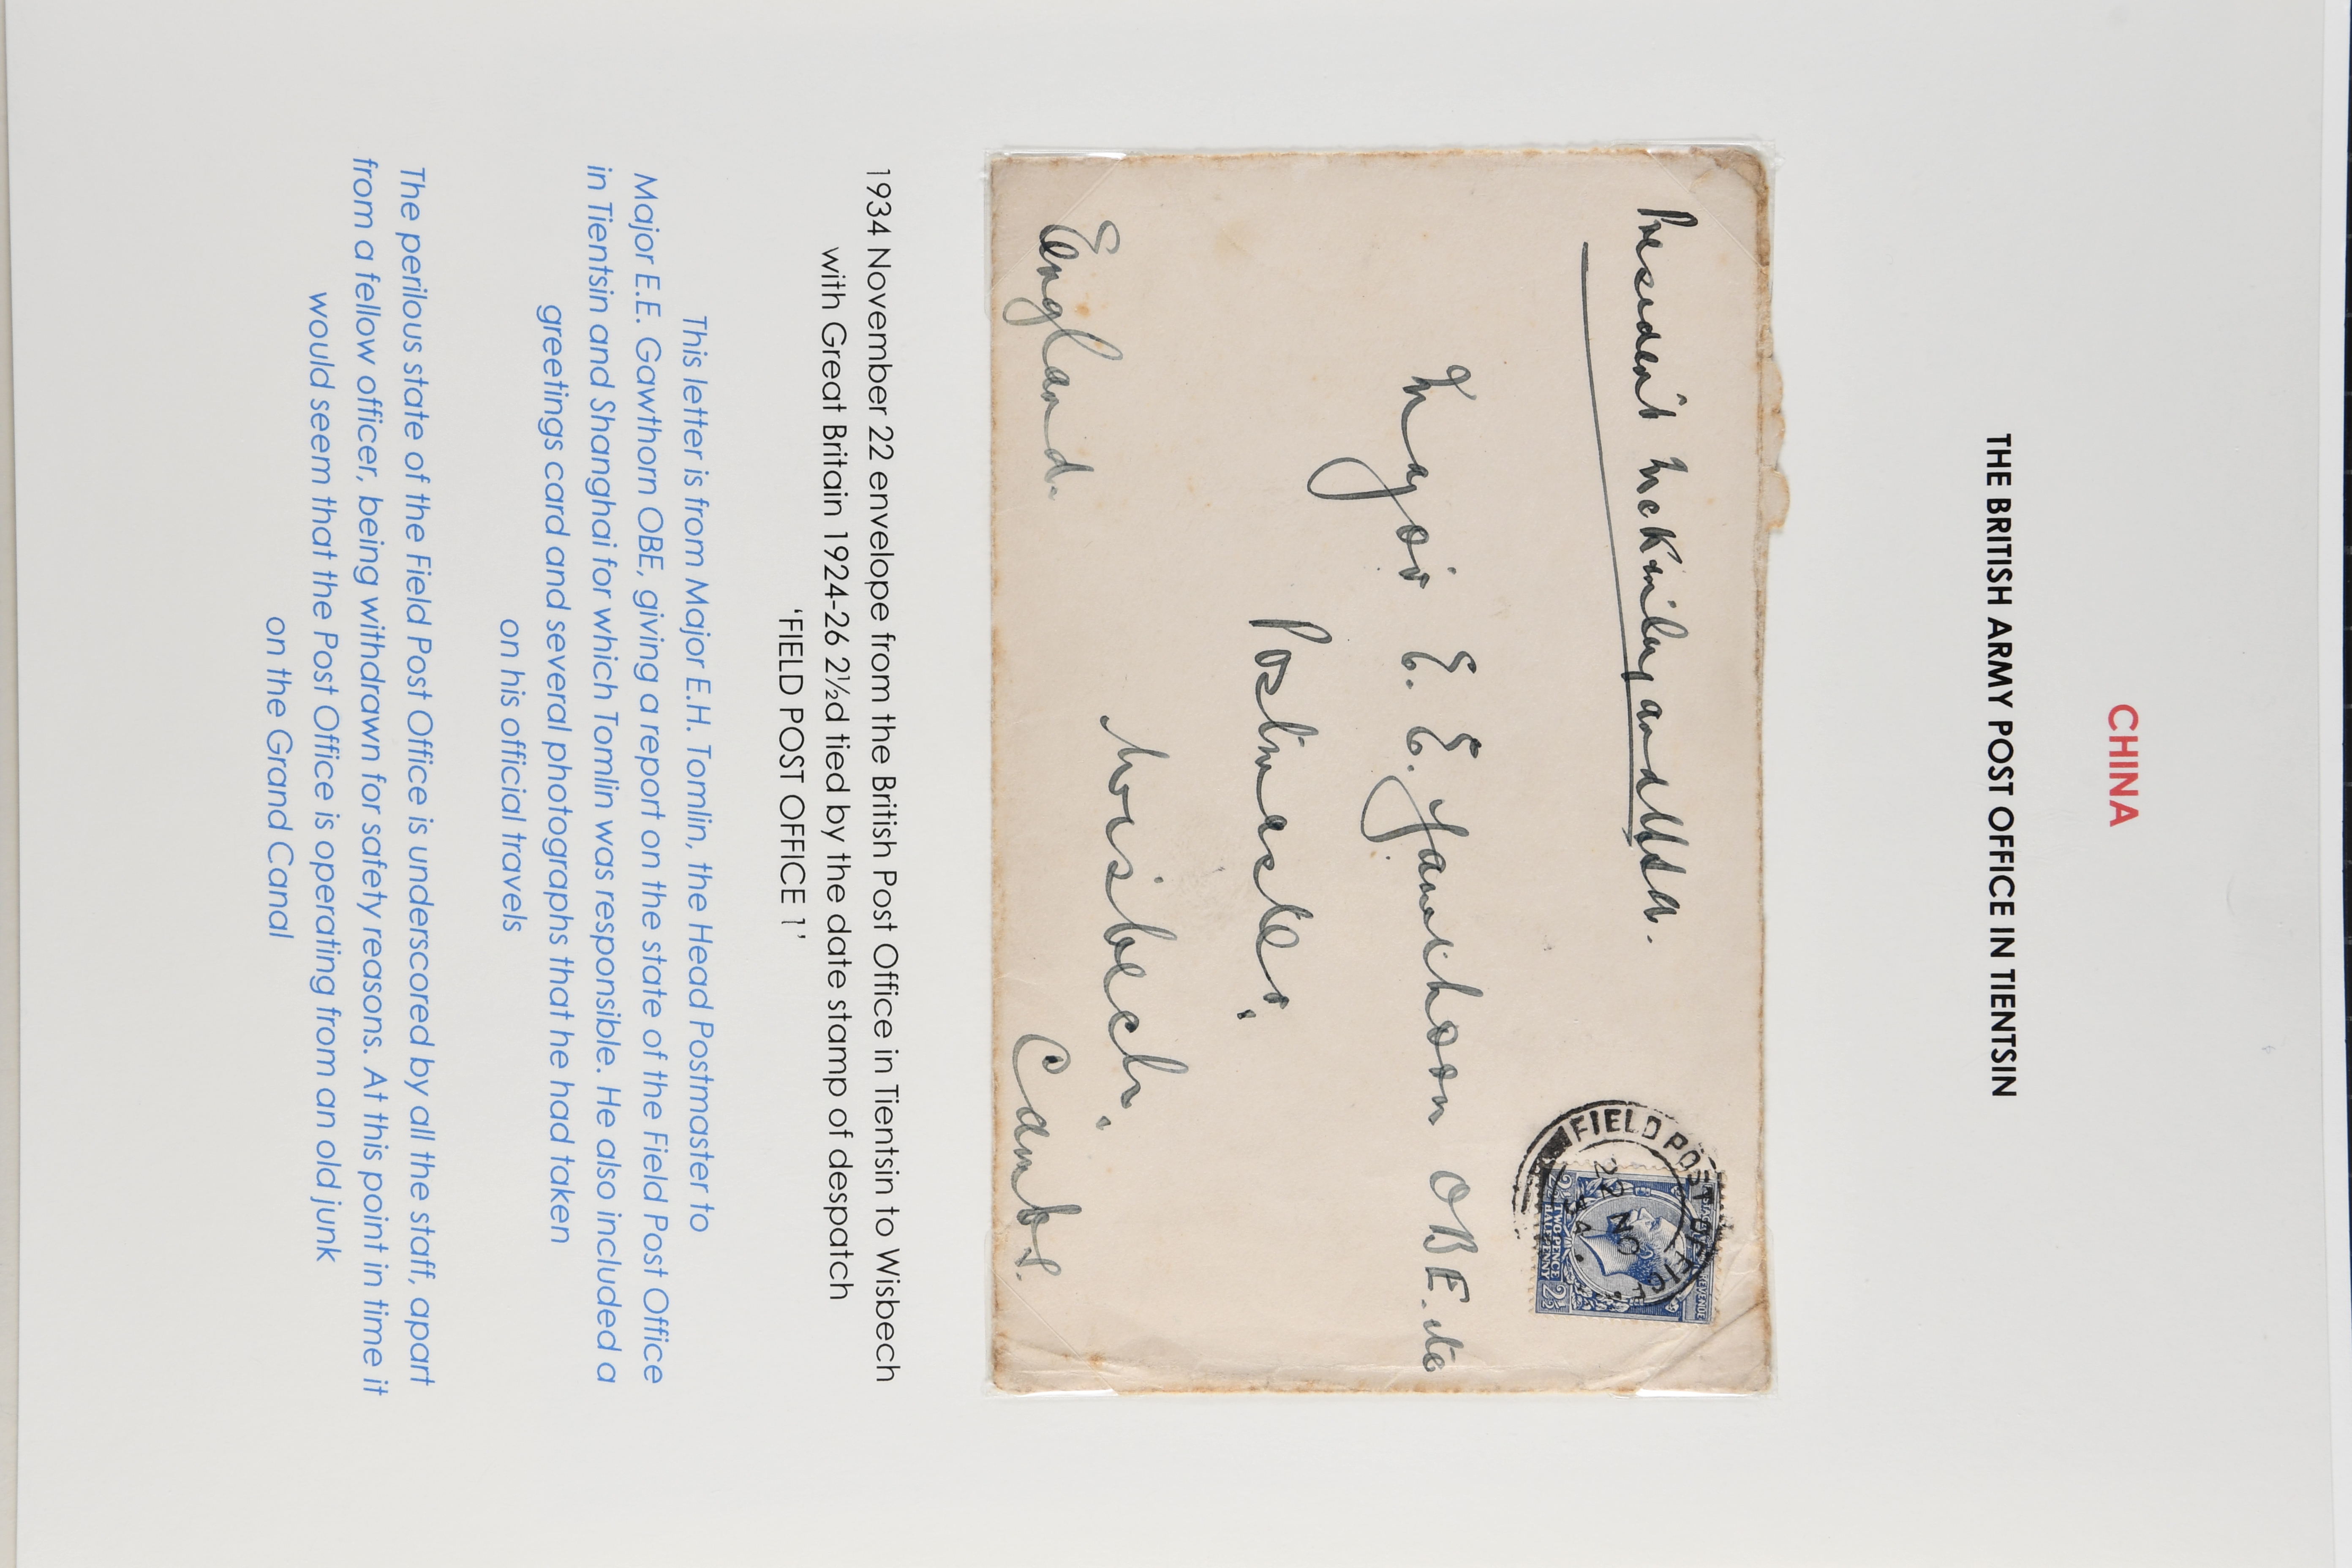 CHINA
THE BRITISH ARMY POST OFFICE IN TIENTSIN
President McKinley and USA.
FIELD POST OFFICE
22 NO
34
REVENUE
TWO PENCE
HALFPENNY
2½ 2½
Major E. E. Gawthorn OBE. etc
Postmaster,
Wisbech,
England. Cambs.
1934 November 22 envelope from the British Post Office in Tientsin to Wisbech
with Great Britain 1924-26 2½d tied by the date stamp of despatch
'FIELD POST OFFICE 1'
This letter is from Major E.H. Tomlin, the Head Postmaster to
Major E.E. Gawthorn OBE, giving a report on the state of the Field Post Office
in Tientsin and Shanghai for which Tomlin was responsible. He also included a
greetings card and several photographs that he had taken
on his official travels
The perilous state of the Field Post Office is underscored by all the staff, apart
from a fellow officer, being withdrawn for safety reasons. At this point in time it
would seem that the Post Office is operating from an old junk
on the Grand Canal